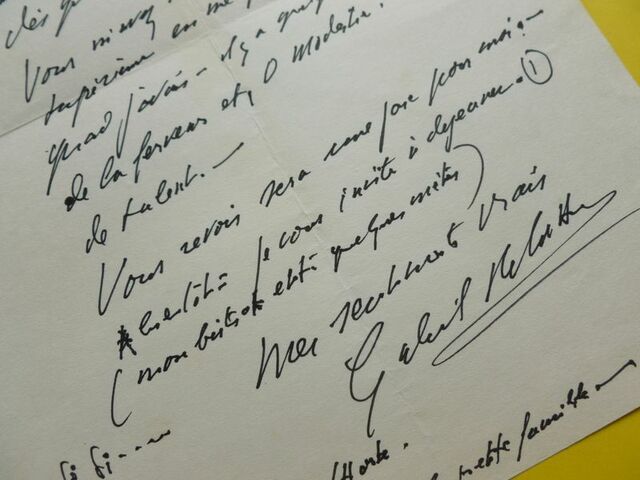 dès
Vous
supérieur en
quand j'avais - il y a
de la ferveur et, O Modestie!
de talent. —
Vous revoir sera une joie pour moi. —
bientôt = je vous invite à déjeuner. ①
(mon bistrot est à quelques mètres)
Mes sentiments vrais
Gabriel
Si Si ----
petite famille —